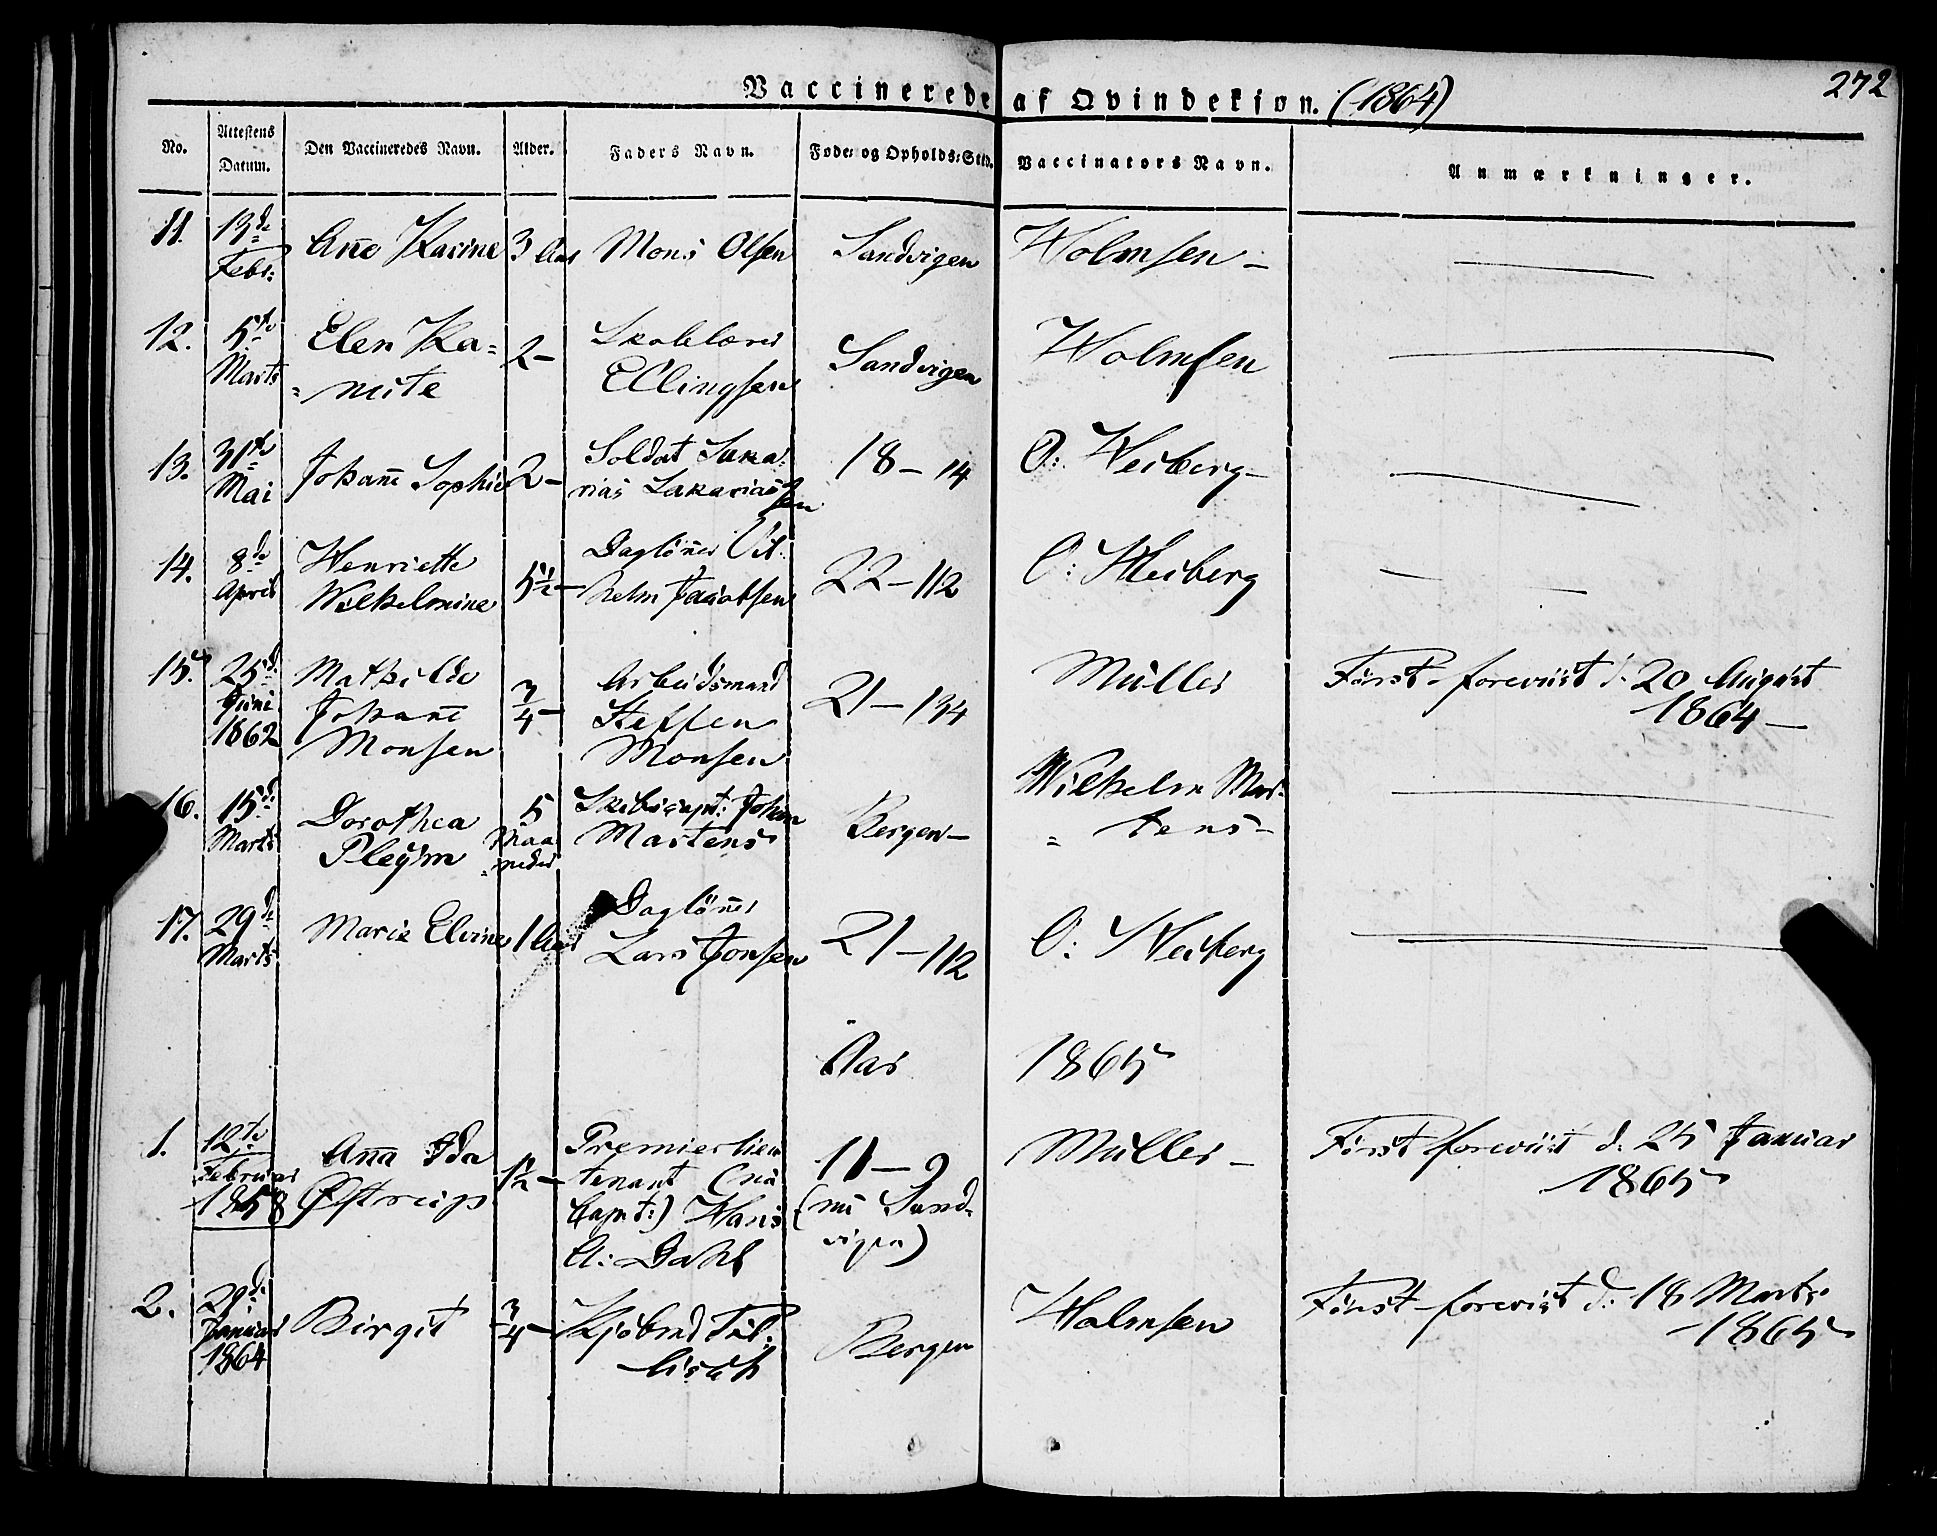 272
Vaccinerede af Qvindekjøn. (1864)
No. Attestens Datum. Den Vaccineredes Navn. Alder. Faders Navn. Føde- og Opholds-Sted. Vaccinators Navn. Anmærkninger.
11. 13de Febr: Añe Karine 3 Aar Mons Olsen Sandvigen Holmsen –
12. 5te Marts Elen Ka= =nute 2 – Skolelærer Ellingsen Sandvigen Holmsen
13. 31te Mai Johañe Sophie 2 – Soldat Saka: rias Sakariassen 18 – 14 O: Heiberg –
14. 8de April Henriette Wilhelmine 5 1/2 – Daglöñer Vil: helm Jacobsen 22 – 112 O: Heiberg
15. 25d. Juni 1862 Mathilde Johañe Monsen 3/4 – Arbeidsmand Steffen Monsen 21 – 134 Müller Først foreviist d: 20 August 1864 –
16. 15de Marts Dorothea Pleÿm 5 Maa =neder Skibscapt: Johan Martens Bergen – Wilhelm Mar: = tens –
17. 29de Marts Marie Elvine 1 Aar Daglöñer Lars Jonsen 21 – 112 O: Heiberg
Aar 1865
1. 12te Februar 1858 Aña Ida Østrup 1 1/2 – Premierlieu tenant (nu Capt:) Hans A: Dahl 11 – 9 (nu Sand- vigen) Müller – Først foreviist d: 25 Januar 1865
2. 29de Januar 1864 Birgit 3/4 – Kjøbmd Bergen Holmsen Først foreviist d: 18 Marts 1865